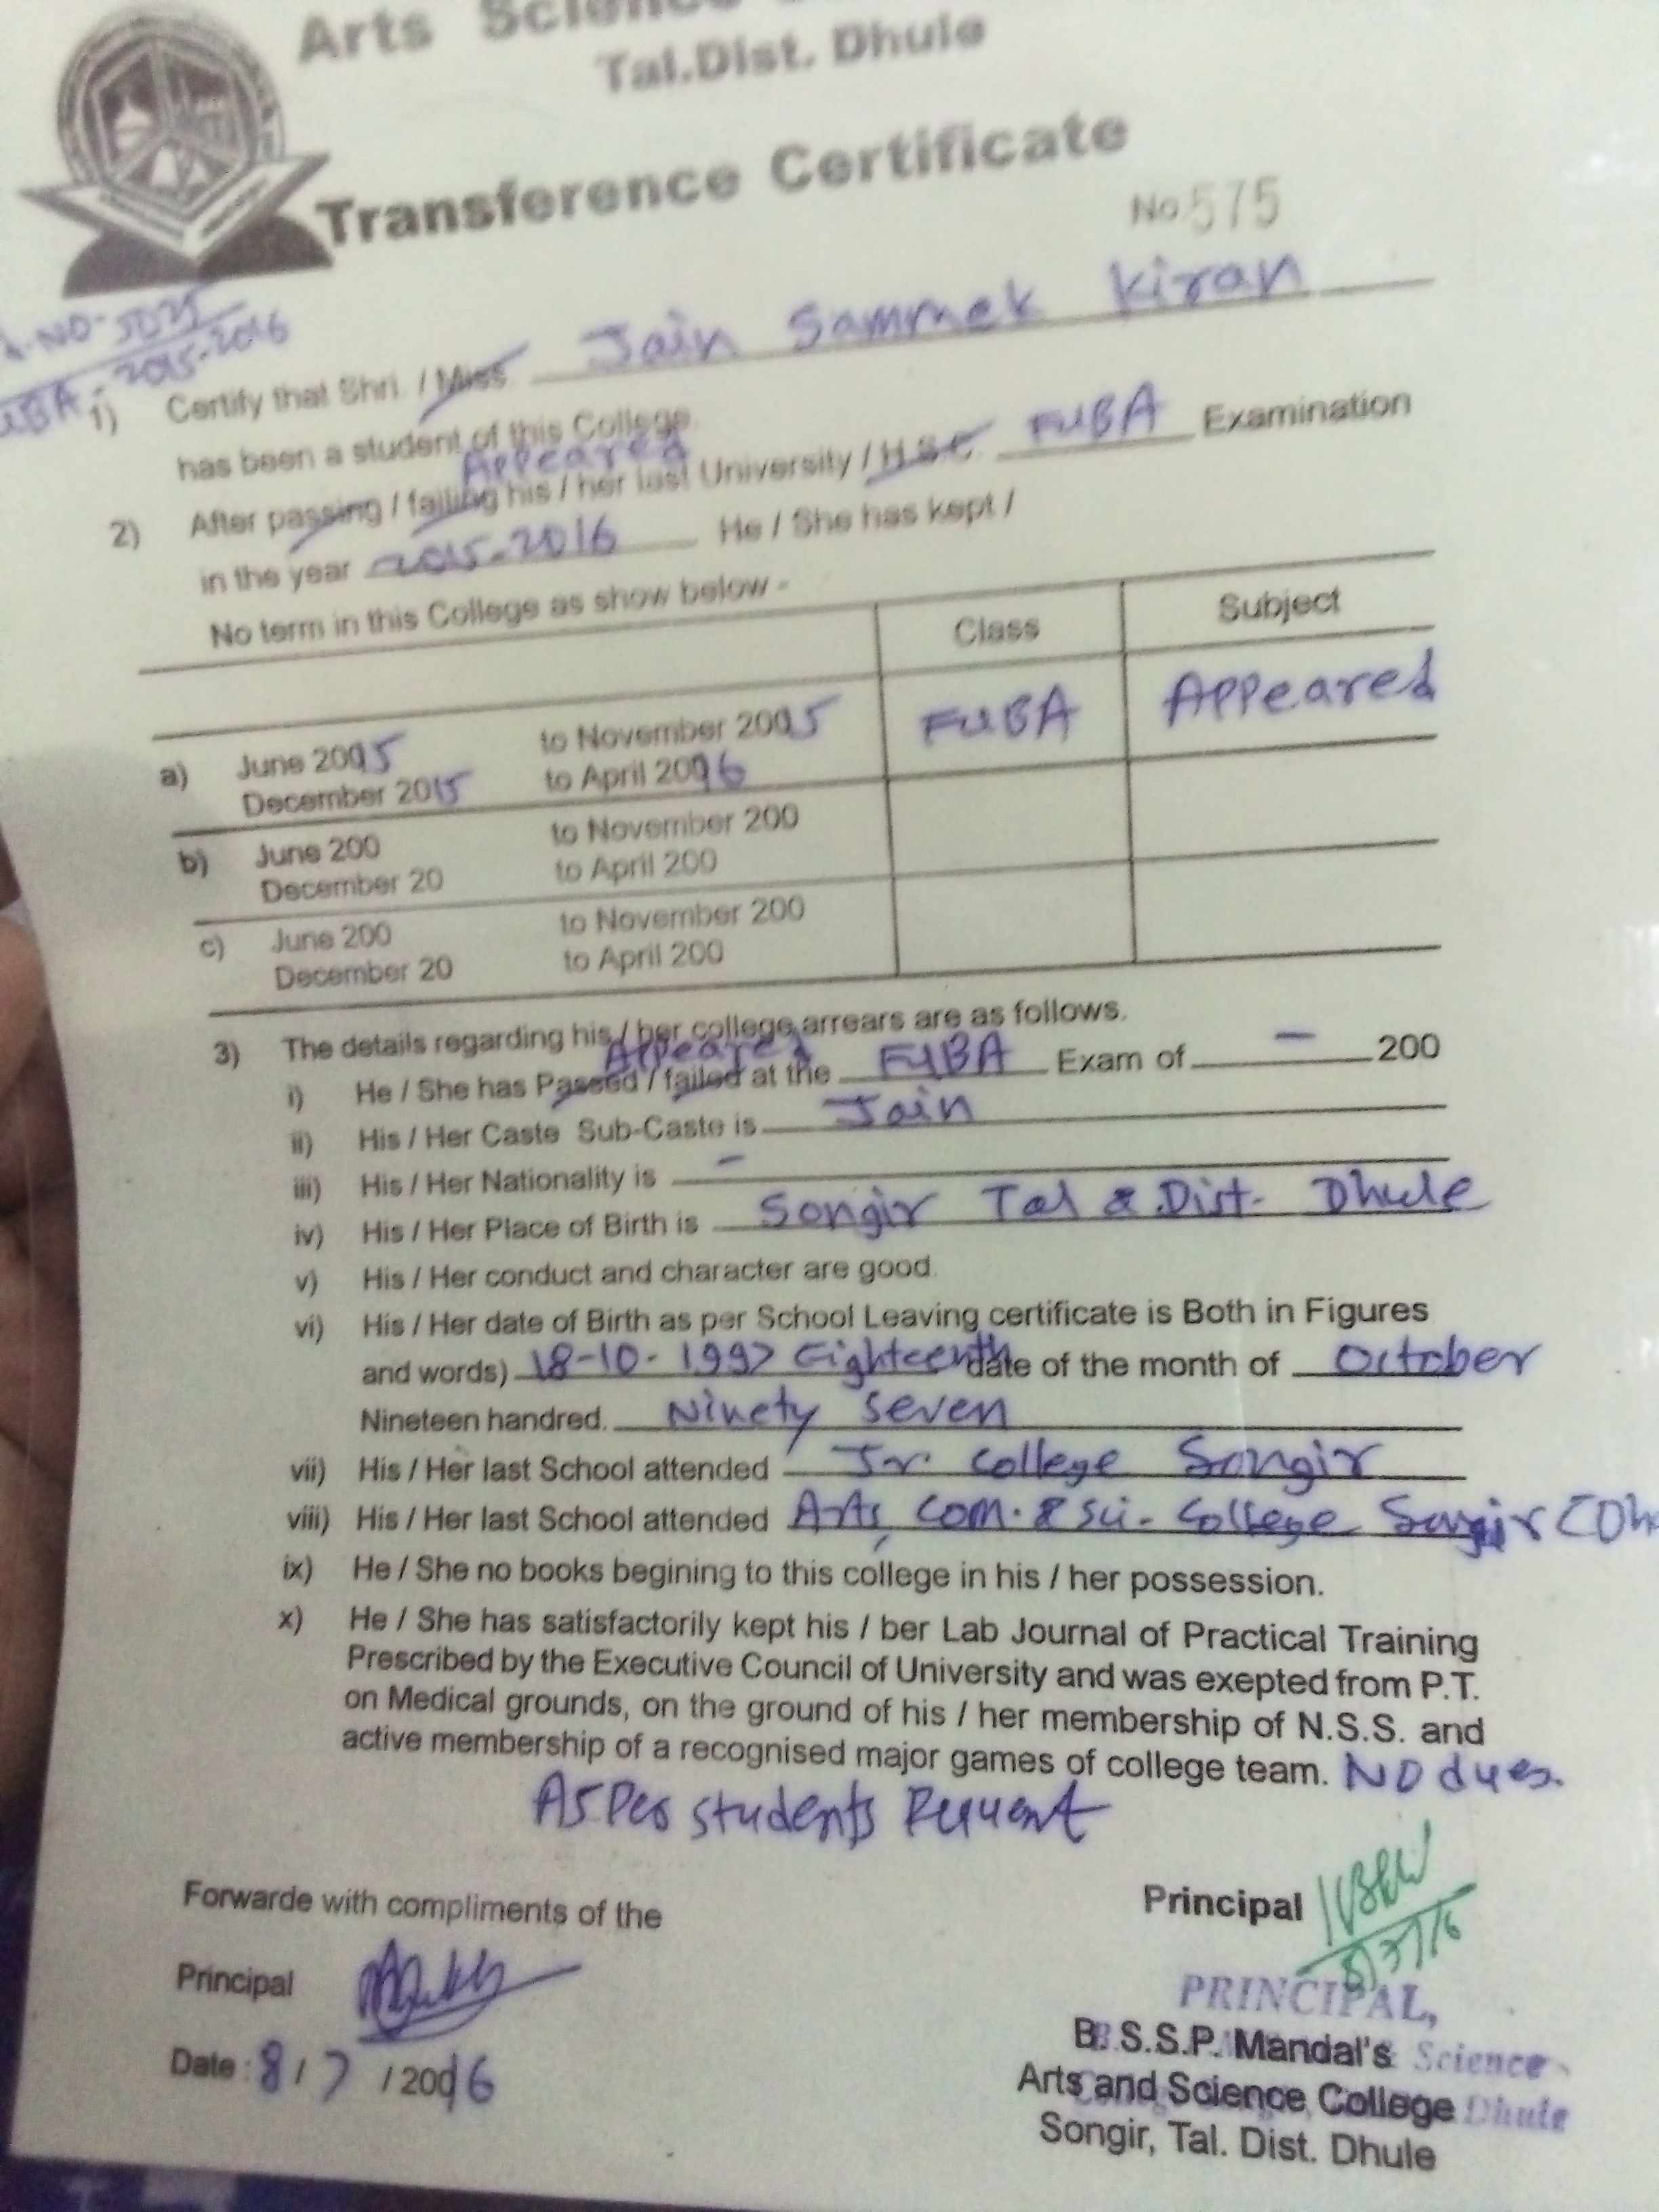 Arts Science
Tal.Dist. Dhule
Transference Certificate
No 575
2015-2016
1) Certify that Shri. / Miss Jain Sammek Kiran
has been a student of this College.
Appeared
2) After passing / failing his / her last University / H.S.C. FYBA Examination
in the year 2015-2016 He / She has kept /
No term in this College as show below -
Class Subject
a) June 2015 to November 2015 FYBA Appeared
December 2015 to April 2016
b) June 200 to November 200
December 20 to April 200
c) June 200 to November 200
December 20 to April 200
3) The details regarding his / her college arrears are as follows.
Appeared
i) He / She has Passed / failed at the FYBA Exam of - 200
ii) His / Her Caste Sub-Caste is Jain
iii) His / Her Nationality is -
iv) His / Her Place of Birth is Songir Tal & Dist- Dhule
v) His / Her conduct and character are good.
vi) His / Her date of Birth as per School Leaving certificate is Both in Figures
and words) 18-10-1997 Eighteenth date of the month of October
Nineteen handred. Ninety seven
vii) His / Her last School attended Jr. College Songir
viii) His / Her last School attended Arts, Com. & Sci- College Songir
ix) He / She no books begining to this college in his / her possession.
x) He / She has satisfactorily kept his / ber Lab Journal of Practical Training
Prescribed by the Executive Council of University and was exepted from P.T.
on Medical grounds, on the ground of his / her membership of N.S.S. and
active membership of a recognised major games of college team. NO dues.
As Per students
Forwarde with compliments of the
Principal
Principal
Date : 8 / 7 / 2016
PRINCIPAL,
B.S.S.P. Mandal's Science
Arts and Science College Dhule
Songir, Tal. Dist. Dhule